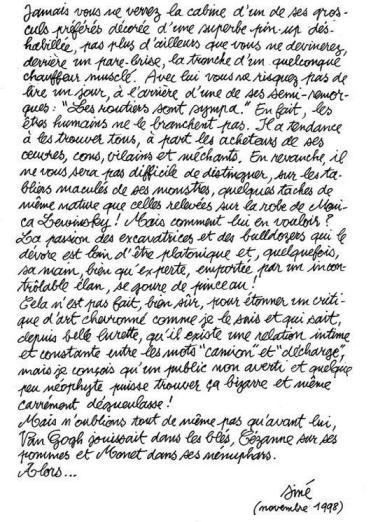 Jamais vous ne verrez la cabine d'un de ses gros-
culs préférés décorée d'une superbe pin-up dés-
habillée, pas plus d'ailleurs que vous ne devinerez,
derrière un pare-brise, la tronche d'un quelconque
chauffeur musclé. Avec lui vous ne risquez pas de
lire un jour, à l'arrière d'une de ses semi-remor-
ques : "Les routiers sont sympa." En fait, les
êtres humains ne le branchent pas. Il a tendance
à les trouver tous, à part les acheteurs de ses
œuvres, cons, vilains et méchants. En revanche, il
ne vous sera pas difficile de distinguer, sur les ta-
bliers maculés de ses monstres, quelques taches de
même nature que celles relevées sur la robe de Moni-
ca Lewinsky ! Mais comment lui en vouloir ?
La passion des excavatrices et des bulldozers qui le
dévore est loin d'être platonique et, quelquefois,
sa main, bien qu'experte, emportée par un incon-
trôlable élan, se goure de pinceau !
Cela n'est pas fait, bien sûr, pour étonner un criti-
que d'art chevronné comme je le suis et qui sait,
depuis belle lurette, qu'il existe une relation intime
et constante entre les mots "camion" et "décharge",
mais je conçois qu'un public non averti et quelque
peu néophyte puisse trouver ça bizarre et même
carrément dégueulasse !
Mais n'oublions tout de même pas qu'avant lui,
Van Gogh jouissait dans les blés, Cézanne sur ses
pommes et Monet dans ses nénuphars.
Alors...
Siné
(novembre 1998)